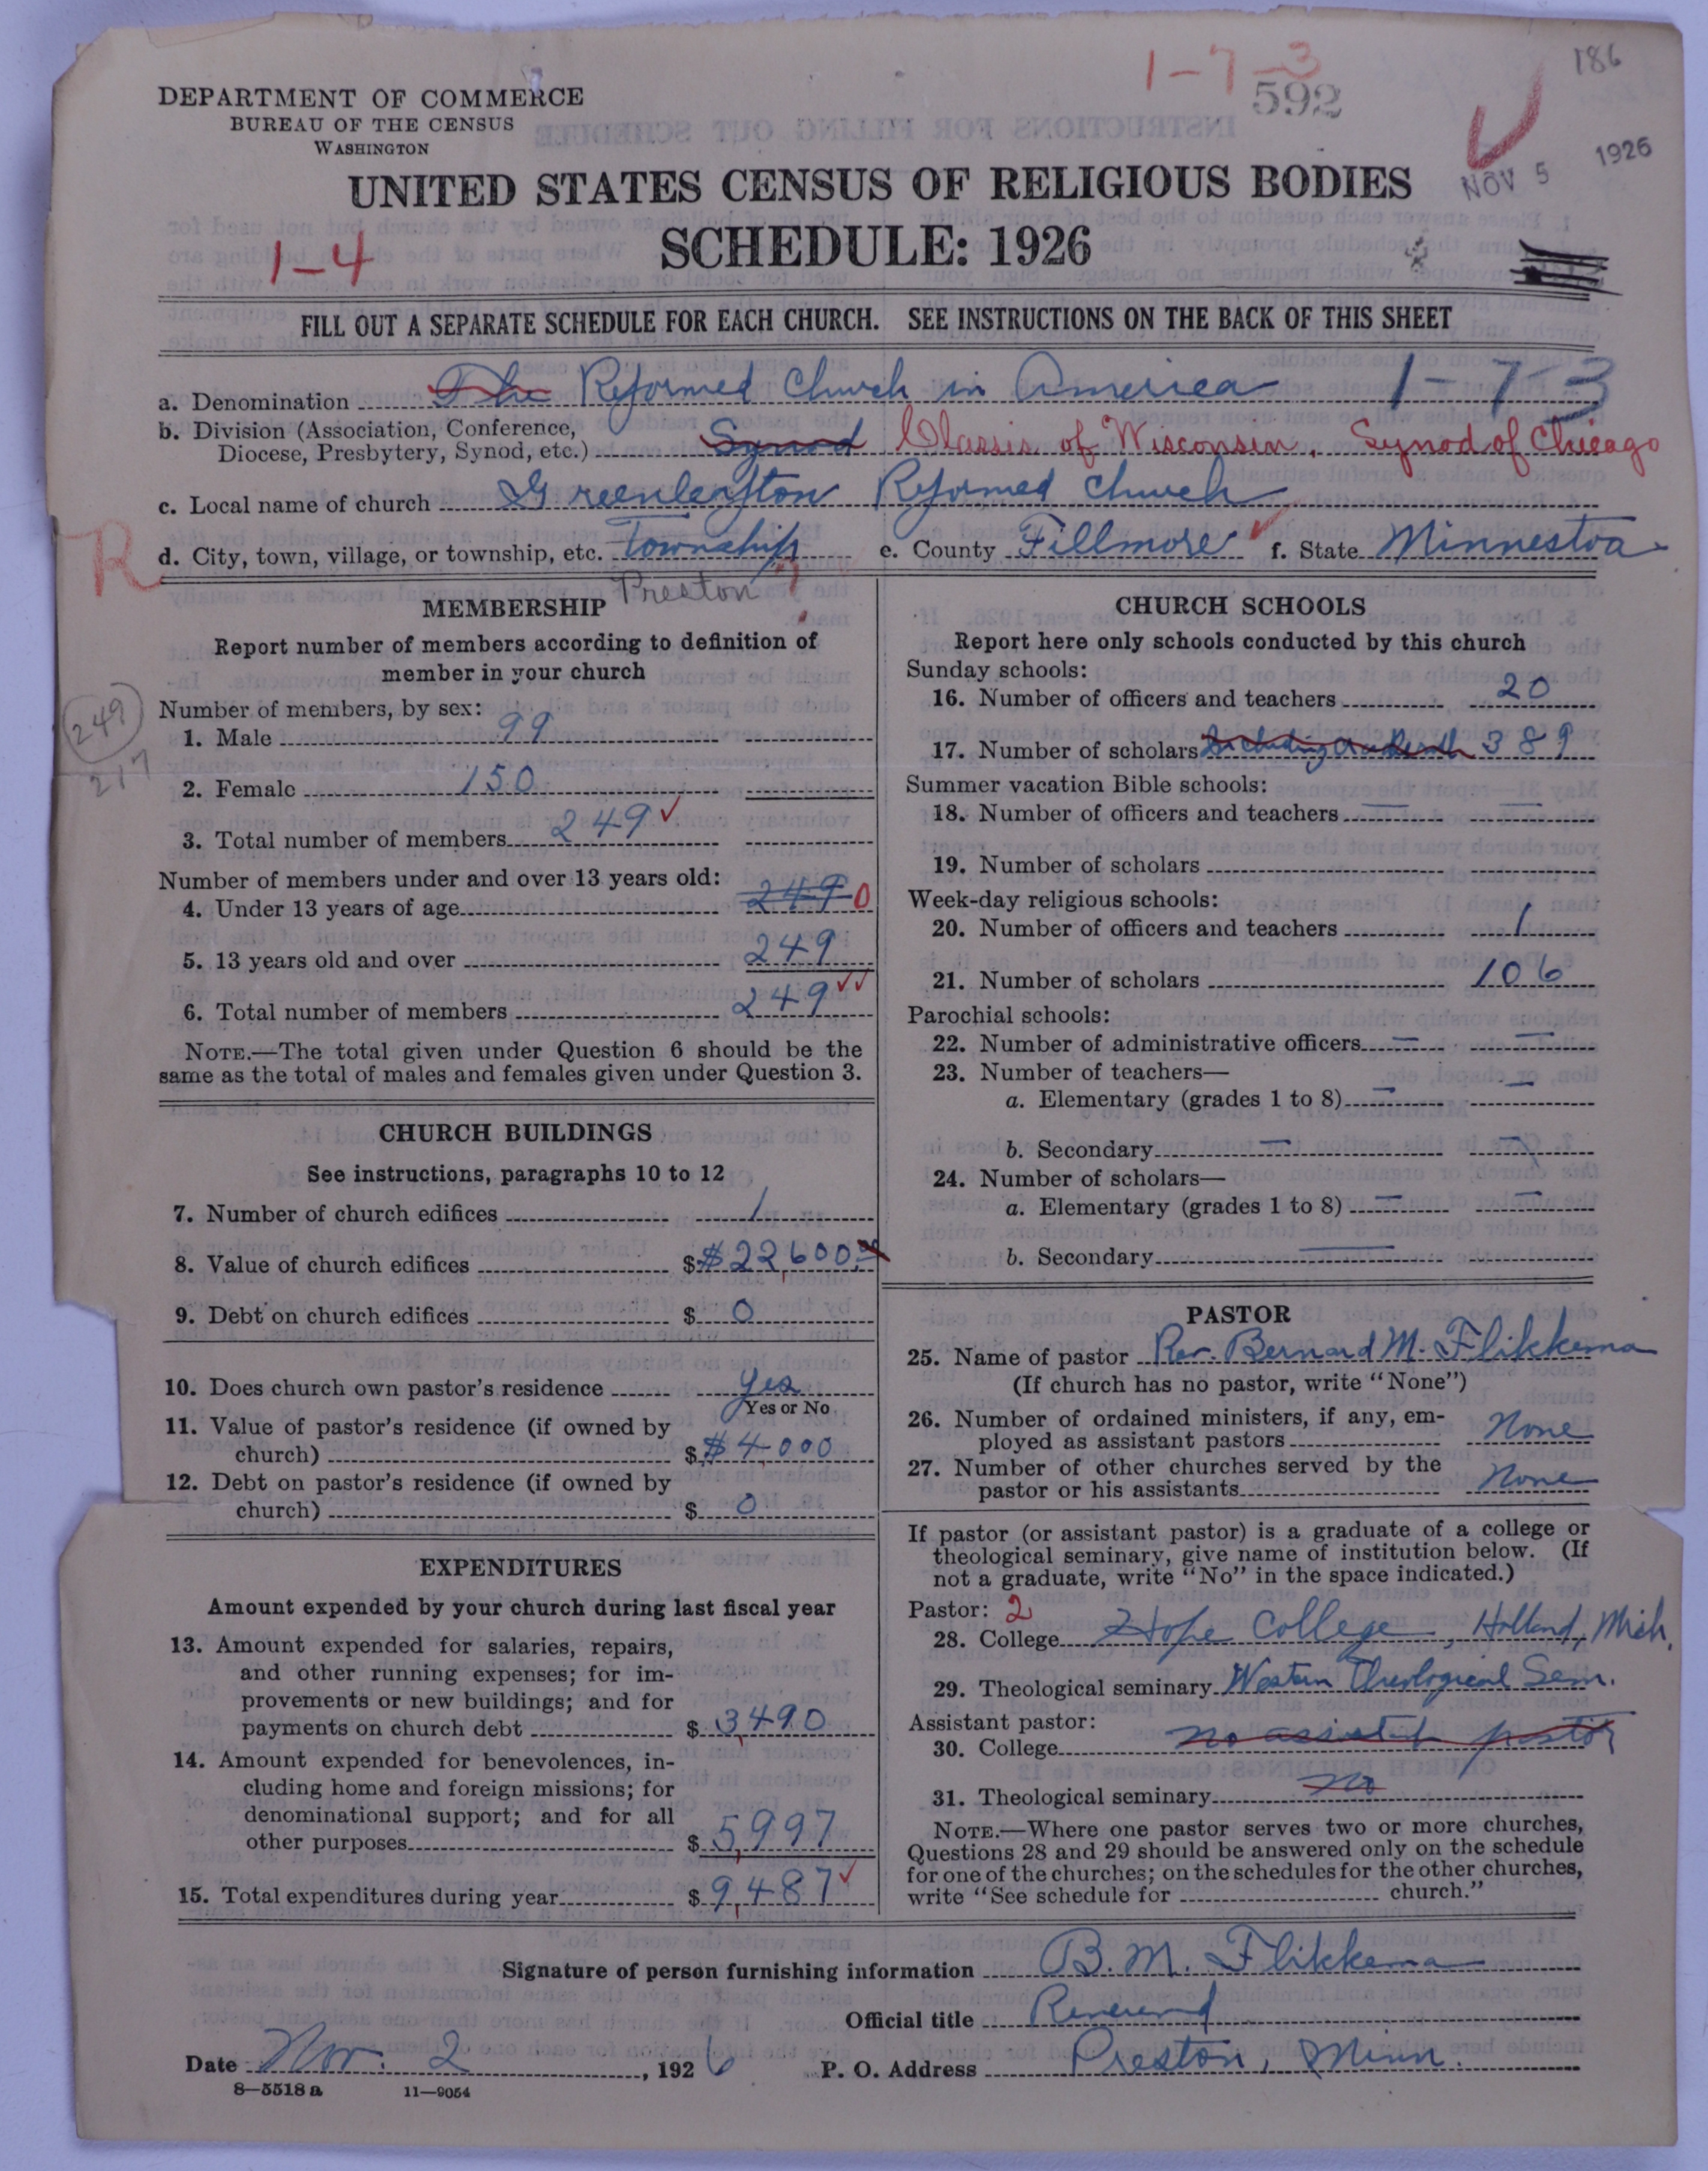 1-7-3
186
592
DEPARTMENT OF COMMERCE
BUREAU OF THE CENSUS
WASHINGTON
NOV 5 1926
UNITED STATES CENSUS OF RELIGIOUS BODIES
SCHEDULE: 1926
1-4
FILL OUT A SEPARATE SCHEDULE FOR EACH CHURCH. SEE INSTRUCTIONS ON THE BACK OF THIS SHEET
a. Denomination The Reformed Church in America 1-7-3
b. Division (Association, Conference,
Diocese, Presbytery, Synod, etc.) Synod Classis of Wisconsin, Synod of Chicago
c. Local name of church Greenleafton Reformed Church
R
d. City, town, village, or township, etc. Township e. County Fillmore f. State Minnestoa
Preston
MEMBERSHIP
Report number of members according to definition of
member in your church
Number of members, by sex:
249
217
1. Male 99
2. Female 150
3. Total number of members 249
Number of members under and over 13 years old:
4. Under 13 years of age 249 0
5. 13 years old and over 249
6. Total number of members 249
NOTE.—The total given under Question 6 should be the
same as the total of males and females given under Question 3.
CHURCH BUILDINGS
See instructions, paragraphs 10 to 12
7. Number of church edifices 1
8. Value of church edifices $ $22,600.00
9. Debt on church edifices $ 0
10. Does church own pastor's residence yes
Yes or No
11. Value of pastor's residence (if owned by
church) $ $4000
12. Debt on pastor's residence (if owned by
church) $ 0
EXPENDITURES
Amount expended by your church during last fiscal year
13. Amount expended for salaries, repairs,
and other running expenses; for im-
provements or new buildings; and for
payments on church debt $ 3,490
14. Amount expended for benevolences, in-
cluding home and foreign missions; for
denominational support; and for all
other purposes $ 5,997
15. Total expenditures during year $ 9,487
CHURCH SCHOOLS
Report here only schools conducted by this church
Sunday schools:
16. Number of officers and teachers 20
17. Number of scholars 389
Summer vacation Bible schools:
18. Number of officers and teachers — —
19. Number of scholars
Week-day religious schools:
20. Number of officers and teachers 1
21. Number of scholars 106
Parochial schools:
22. Number of administrative officers — —
23. Number of teachers—
a. Elementary (grades 1 to 8) — —
b. Secondary — —
24. Number of scholars—
a. Elementary (grades 1 to 8) — —
b. Secondary —
PASTOR
25. Name of pastor Rev. Bernard M. Flikkema
(If church has no pastor, write "None")
26. Number of ordained ministers, if any, em-
ployed as assistant pastors None
27. Number of other churches served by the
pastor or his assistants None
If pastor (or assistant pastor) is a graduate of a college or
theological seminary, give name of institution below. (If
not a graduate, write "No" in the space indicated.)
Pastor: 2
28. College Hope College, Holland, Mich.
29. Theological seminary Western Theological Sem.
Assistant pastor:
30. College no assistant pastor
31. Theological seminary no
NOTE.—Where one pastor serves two or more churches,
Questions 28 and 29 should be answered only on the schedule
for one of the churches; on the schedules for the other churches,
write "See schedule for church."
Signature of person furnishing information B. M. Flikkema
Official title Reverend
Date Nov. 2, 1926 P. O. Address Preston, Minn.
8-5518 a 11-9054